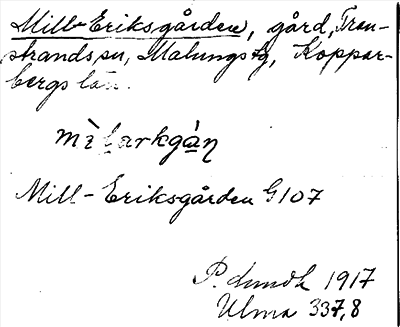 Mill-Eriksgården, gård, Tran-
strands sn, Malungs tg, Koppar-
bergs län.
mìlarkgàn
Mill-Eriksgården G107
P. Lundh 1917
Ulma 337,8